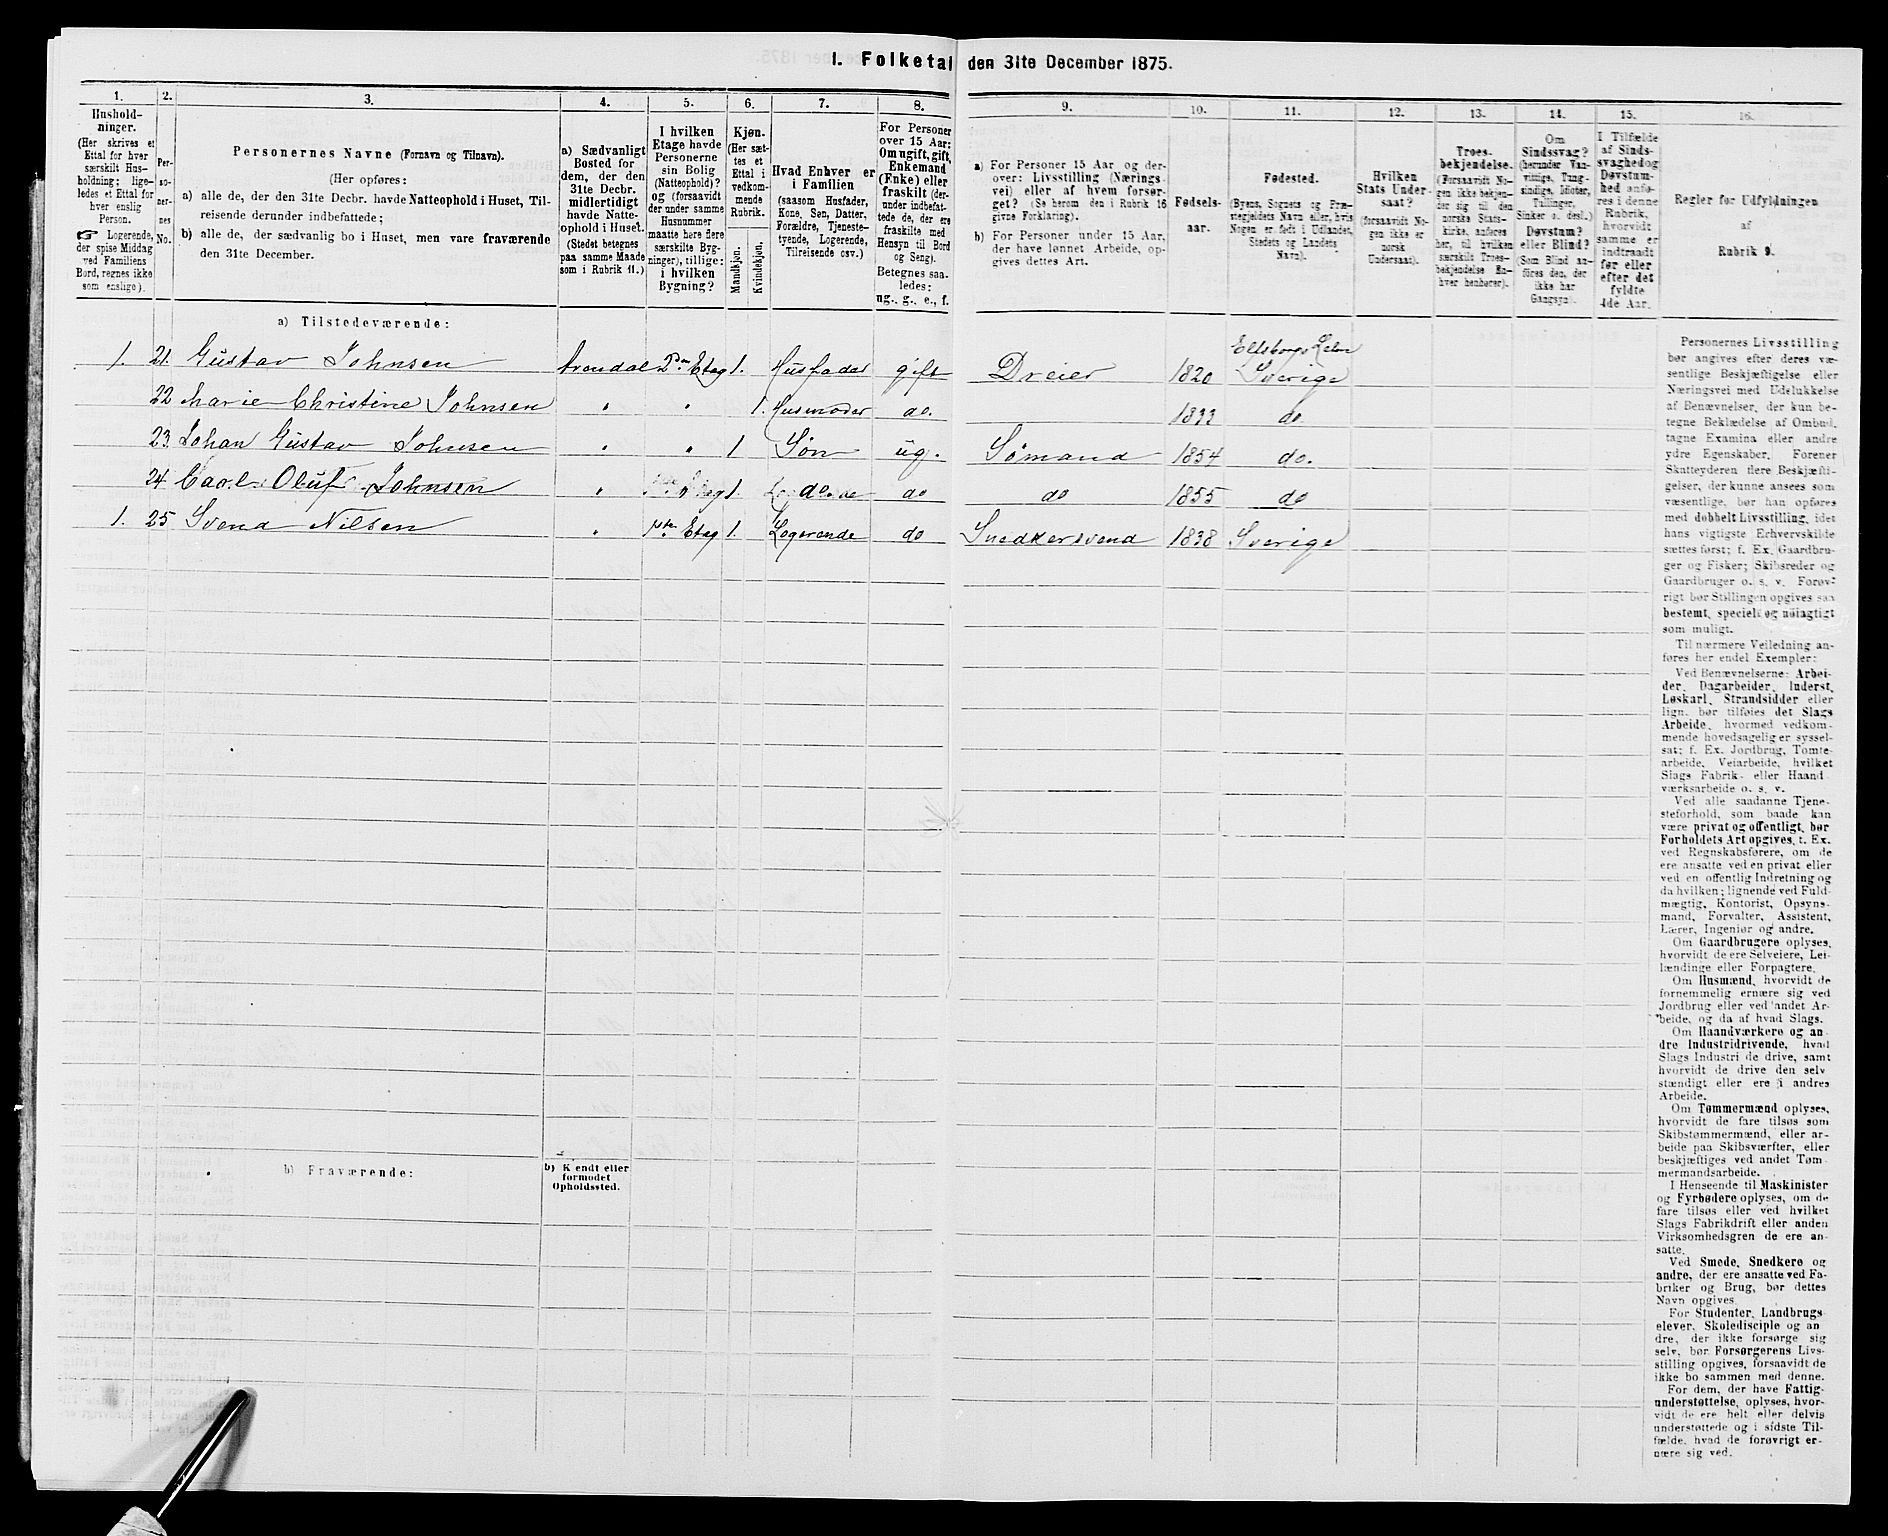 1. Folketal den 31te December 1875.
1. 2. 3. 4. 5. 6. 7. 8. 9. 10. 11. 12. 13. 14. 15. 16.
Hushold-
ninger.
(Her skrives et
Ettal for hver
særskilt Hus-
holdning; lige-
ledes et Ettal for
hver enslig
Person.
☞ Logerende,
der spise Middag
ved Familiens
Bord, regnes ikke
som enslige).
Per-
so-
ner-
nes
No.
Personernes Navne (Fornavn og Tilnavn).
(Her opføres:
a) alle de, der den 31te Decbr. havde Natteophold i Huset, Til-
reisende derunder indbefattede;
b) alle de, der sædvanlig bo i Huset, men vare fraværende
den 31te December.
a) Sædvanligt
Bosted for
dem, der den
31te Decbr.
midlertidigt
havde Natte-
ophold i Huset.
(Stedet betegnes
paa samme Maade
som i Rubrik 11.)
I hvilken
Etage havde
Personerne
sin Bolig
(Natteophold)?
og (forsaavidt
der under samme
Husnummer
maatte høre flere
særskilte Byg-
ninger), tillige:
i hvilken
Bygning?
Kjøn.
(Her sæt-
tes et
Ettal i
vedkom-
mende
Rubrik.
Mandkjøn.
Kvindekjøn.
Hvad Enhver er
i Familien
(saasom Husfader,
Kone, Søn, Datter,
Forældre, Tjeneste-
tyende, Logerende,
Tilreisende osv.)
For Personer
over 15 Aar:
Om ugift, gift,
Enkemand
(Enke) eller
fraskilt (der-
under indbefat-
tede de, der ere
fraskilte med
Hensyn til Bord
og Seng).
Betegnes saa-
ledes:
ug., g., e., f.
a) For Personer 15 Aar og der-
over: Livsstilling (Nærings-
vei) eller af hvem forsør-
get? (Se herom den i Rubrik 16
givne Forklaring).
b) For Personer under 15 Aar,
der have lønnet Arbeide, op-
gives dettes Art.
Fødsels-
aar.
Fødested.
(Byens, Sognets og Præ-
stegjeldets Navn eller, hvis
Nogen er født i Udlandet,
Stedets og Landets
Navn).
Hvilken
Stats Under-
saat?
(forsaavidt No-
gen ikke er
norsk
Undersaat).
Troes-
bekjendelse.
(Forsaavidt No-
gen ikke bekjen-
der sig til den
norske Stats-
kirke, anføres
her, til hvilken
særskilt Troes-
bekjendelse En-
hver henhører).
Om
Sindssvag?
(herunder Van-
vittige, Tung-
sindige, Idioter,
Tullinger,
Sinker o. desl.)
Døvstum?
eller Blind?
(Som Blind an-
føres den, der
ikke har
Gangsyn).
I Tilfælde
af Sinds-
svaghed og
Døvstum-
hed anfø-
res i denne
Rubrik,
hvorvidt
samme er
indtraadt
før eller
efter det
fyldte
4de Aar.
Regler for Udfyldningen
af
Rubrik 9.
a) Tilstedeværende:
1. 21. Gustav Johnsen Arendal 2den Etag 1. Husfader gift Dreier 1820 Elfsborgs Lehn Sverige
22 Marie Christine Johnsen " " 1. Husmoder do. 1833 do
23. Johan Gustav Johnsen " " 1 Søn ug. Sømand 1854 do.
24. Carl Oluf Johnsen " " 1. do. do do 1855 do
1. 25 Svend Nilsen " 1ste Etag 1. Logerende do Snedkersvend 1838 Sverige
b) Fraværende:
b) Kjendt eller
formodet
Opholdssted.
Personernes Livsstilling
bør angives efter deres væ-
sentlige Beskjæftigelse eller
Næringsvei med Udelukkelse
af Benævnelser, der kun be-
tegne Beklædelse af Ombud,
tagne Examina eller andre
ydre Egenskaber. Forener
Skatteyderen flere Beskjæfti-
gelser, der kunne ansees som
væsentlige, bør han opføres
med dobbelt Livsstilling, idet
hans vigtigste Erhvervskilde
sættes først; f. Ex. Gaardbru-
ger og Fisker; Skibsreder og
Gaardbruger o. s. v. Forøv-
rigt bør Stillingen opgives saa
bestemt, specielt og nøiagtigt
som muligt.
Til nærmere Veiledning an-
føres her endel Exempler:
Ved Benævnelserne: Arbei-
der, Dagarbeider, Inderst,
Løskarl, Strandsidder eller
lign. bør tilføies det Slags
Arbeide, hvormed vedkom-
mende hovedsagelig er syssel-
sat; f. Ex. Jordbrug, Tomte-
arbeide, Veiarbeide, hvilket
Slags Fabrik- eller Haand-
værksarbeide o. s. v.
Ved alle saadanne Tjene-
steforhold, som baade kan
være privat og offentligt, bør
Forholdets Art opgives, f. Ex.
ved Regnskabsførere, om de
ere ansatte ved en privat eller
ved en offentlig Indretning og
da hvilken; lignende ved Fuld-
mægtig, Kontorist, Opsyns-
mand, Forvalter, Assistent,
Lærer, Ingeniør og andre.
Om Gaardbrugere oplyses,
hvorvidt de ere Selveiere, Lei-
lændinge eller Forpagtere.
Om Husmænd, hvorvidt de
fornemmelig ernære sig ved
Jordbrug eller ved andet Ar-
beide, og da af hvad Slags.
Om Haandværkere og an-
dre Industridrivende, hvad
Slags Industri de drive, samt
hvorvidt de drive den selv-
stændigt eller ere i andres
Arbeide.
Om Tømmermænd oplyses,
hvorvidt de fare tilsøs som
Skibstømmermænd, eller ar-
beide paa Skibsværfter, eller
beskjæftiges ved andet Tøm-
mermandsarbeide.
I Henseende til Maskinister
og Fyrbødere oplyses, om de
fare tilsøs eller ved hvilket
Slags Fabrikdrift eller anden
Virksomhedsgren de ere an-
satte.
Ved Smede, Snedkere og
andre, der ere ansatte ved Fa-
briker og Brug, bør dettes
Navn opgives.
For Studenter, Landbrugs-
elever, Skoledisciple og an-
dre, der ikke forsørge sig
selv, bør Forsørgerens Livs-
stilling opgives, forsaavidt de
ikke bo sammen med denne.
For dem, der have Fattig-
understøttelse, oplyses, hvor-
vidt de ere helt eller delvis
understøttede og i sidste Til-
fælde, hvad de forøvrigt er-
nære sig ved.